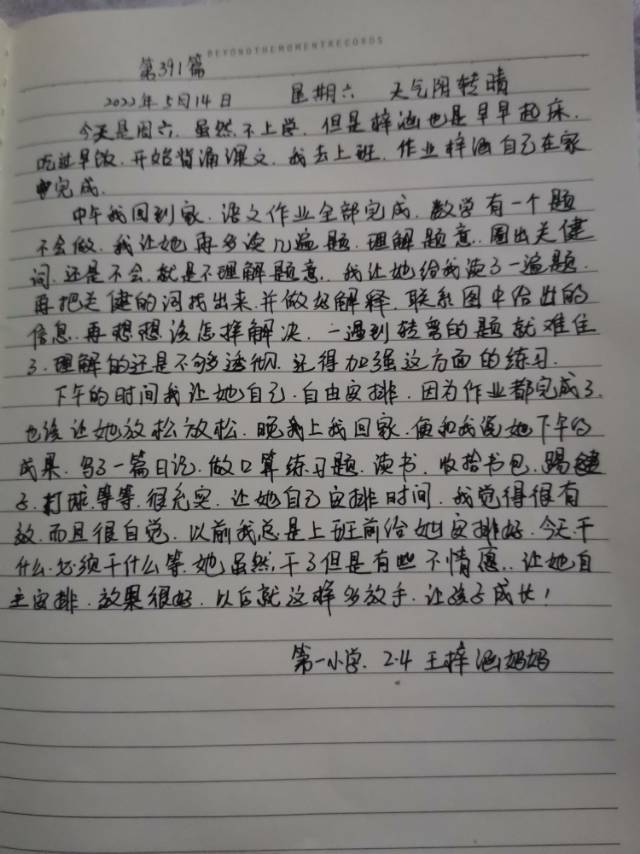 BEYONDTHEMOMENTRECORDS
第391篇
2022年5月14日 星期六 天气阴转晴
今天是周六,虽然不上学,但是梓涵也是早早起床,
吃过早饭,开始背诵课文,我去上班,作业梓涵自己在家
完成.
中午我回到家,语文作业全部完成,数学有一个题
不会做,我让她再多读几遍题,理解题意,圈出关健
词,还是不会,就是不理解题意,我让她给我读了一遍题,
再把关健的词找出来,并做好解释,联系图中给出的
信息,再想想该怎样解决,一遇到转弯的题就难住
了,理解的还是不够透彻,还得加强这方面的练习.
下午的时间我让她自己,自由安排,因为作业都完成了,
也该让她放松放松,晚上我回家,便和我说她下午的
成果,写了一篇日记,做口算练习题,读书,收拾书包,踢毽
子,打球,等等,很充实,让她自己安排时间,我觉得很有
效,而且很自觉,以前我总是上班前给她安排好,今天干
什么,必须干什么等,她虽然,干了但是有些不情愿,让她自
主安排,效果很好,以后就这样多放手,让孩子成长!
第一小学,2.4 王梓涵妈妈